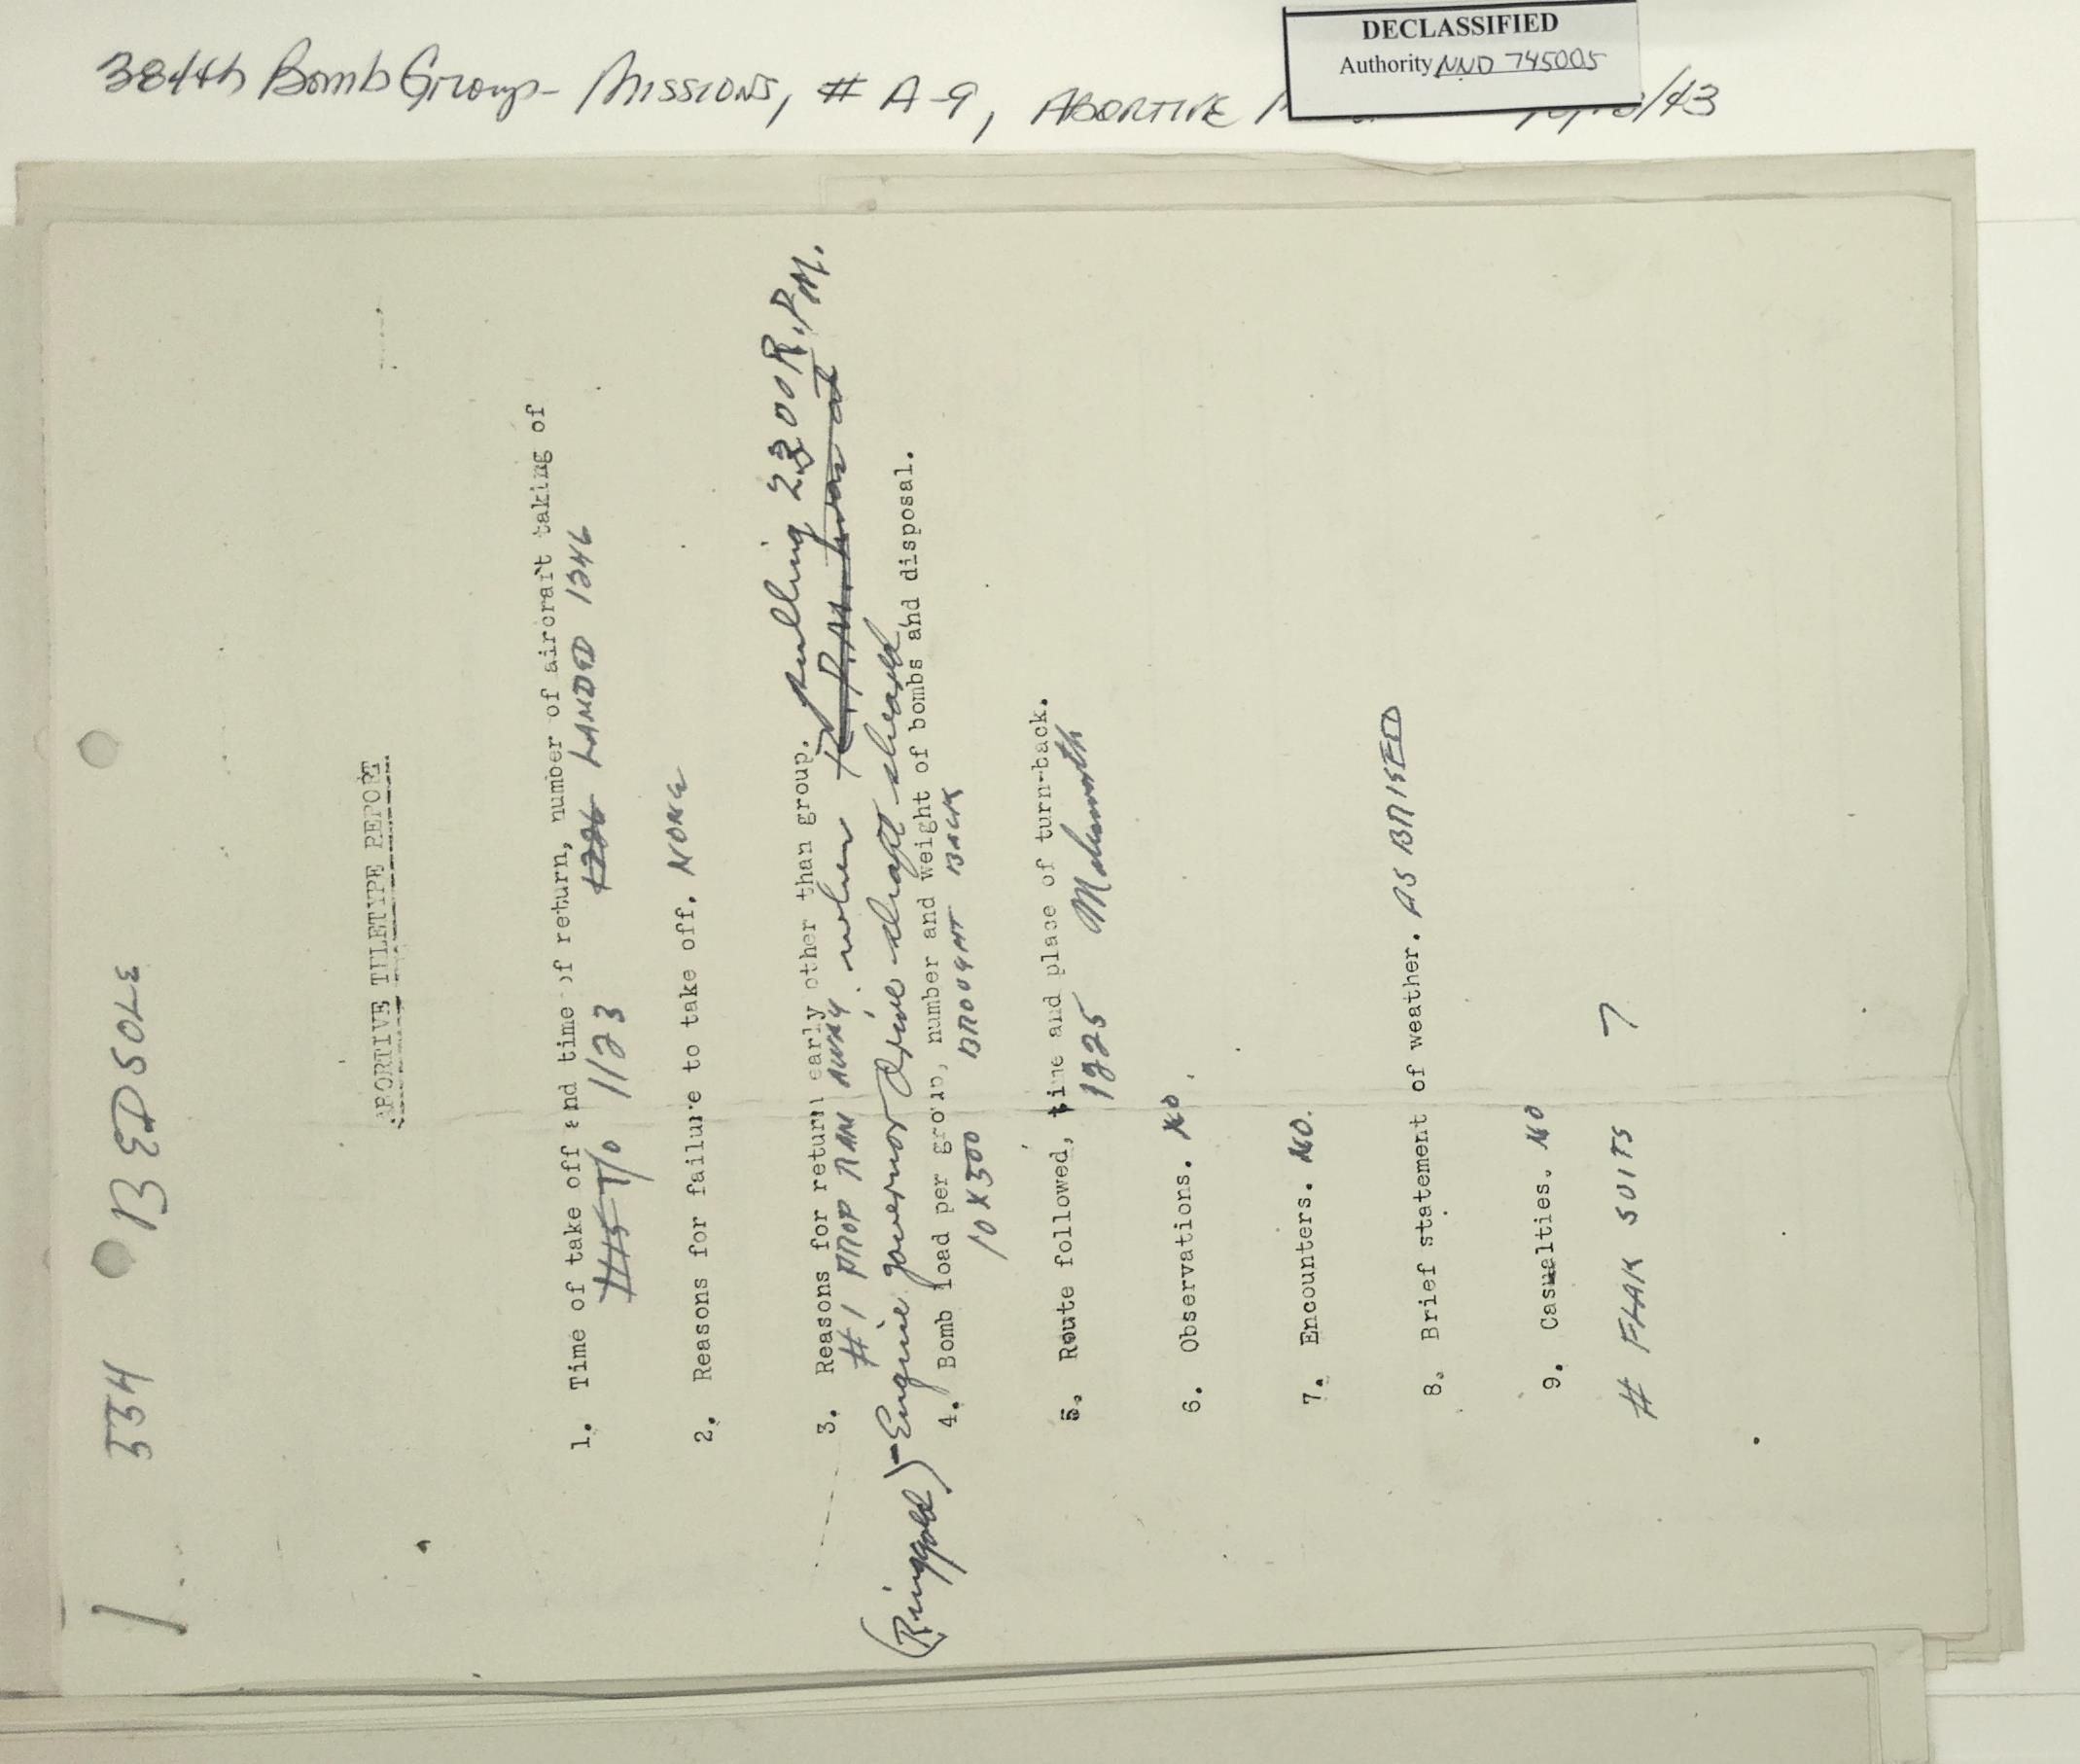 384th Bomb Group - MISSIONS, # A-9, ABORTIVE /43
DECLASSIFIED
Authority NND 745005
1 534 BEDSOLE
APORTIVE TULETYPE REPORT
1. Time of take off and time of return, number of aircraft taking of
1115 T/O 1123 1226 LANDED 1246
2. Reasons for failure to take off. NONE
3. Reasons for return early other than group. pulling 2300 R.P.M.
# 1 PROP RAN AWAY. when R.P.M. was at
(Ringgold) - Engine governor drive shaft sheared
4. Bomb load per group, number and weight of bombs and disposal.
10 X 500 BROUGHT BACK
5. Route followed, time and place of turn-back.
1225
6. Observations. NO.
7. Encounters. NO.
8. Brief statement of weather. AS BRISED
9. Casualties. NO
# FLAK SUITS 7